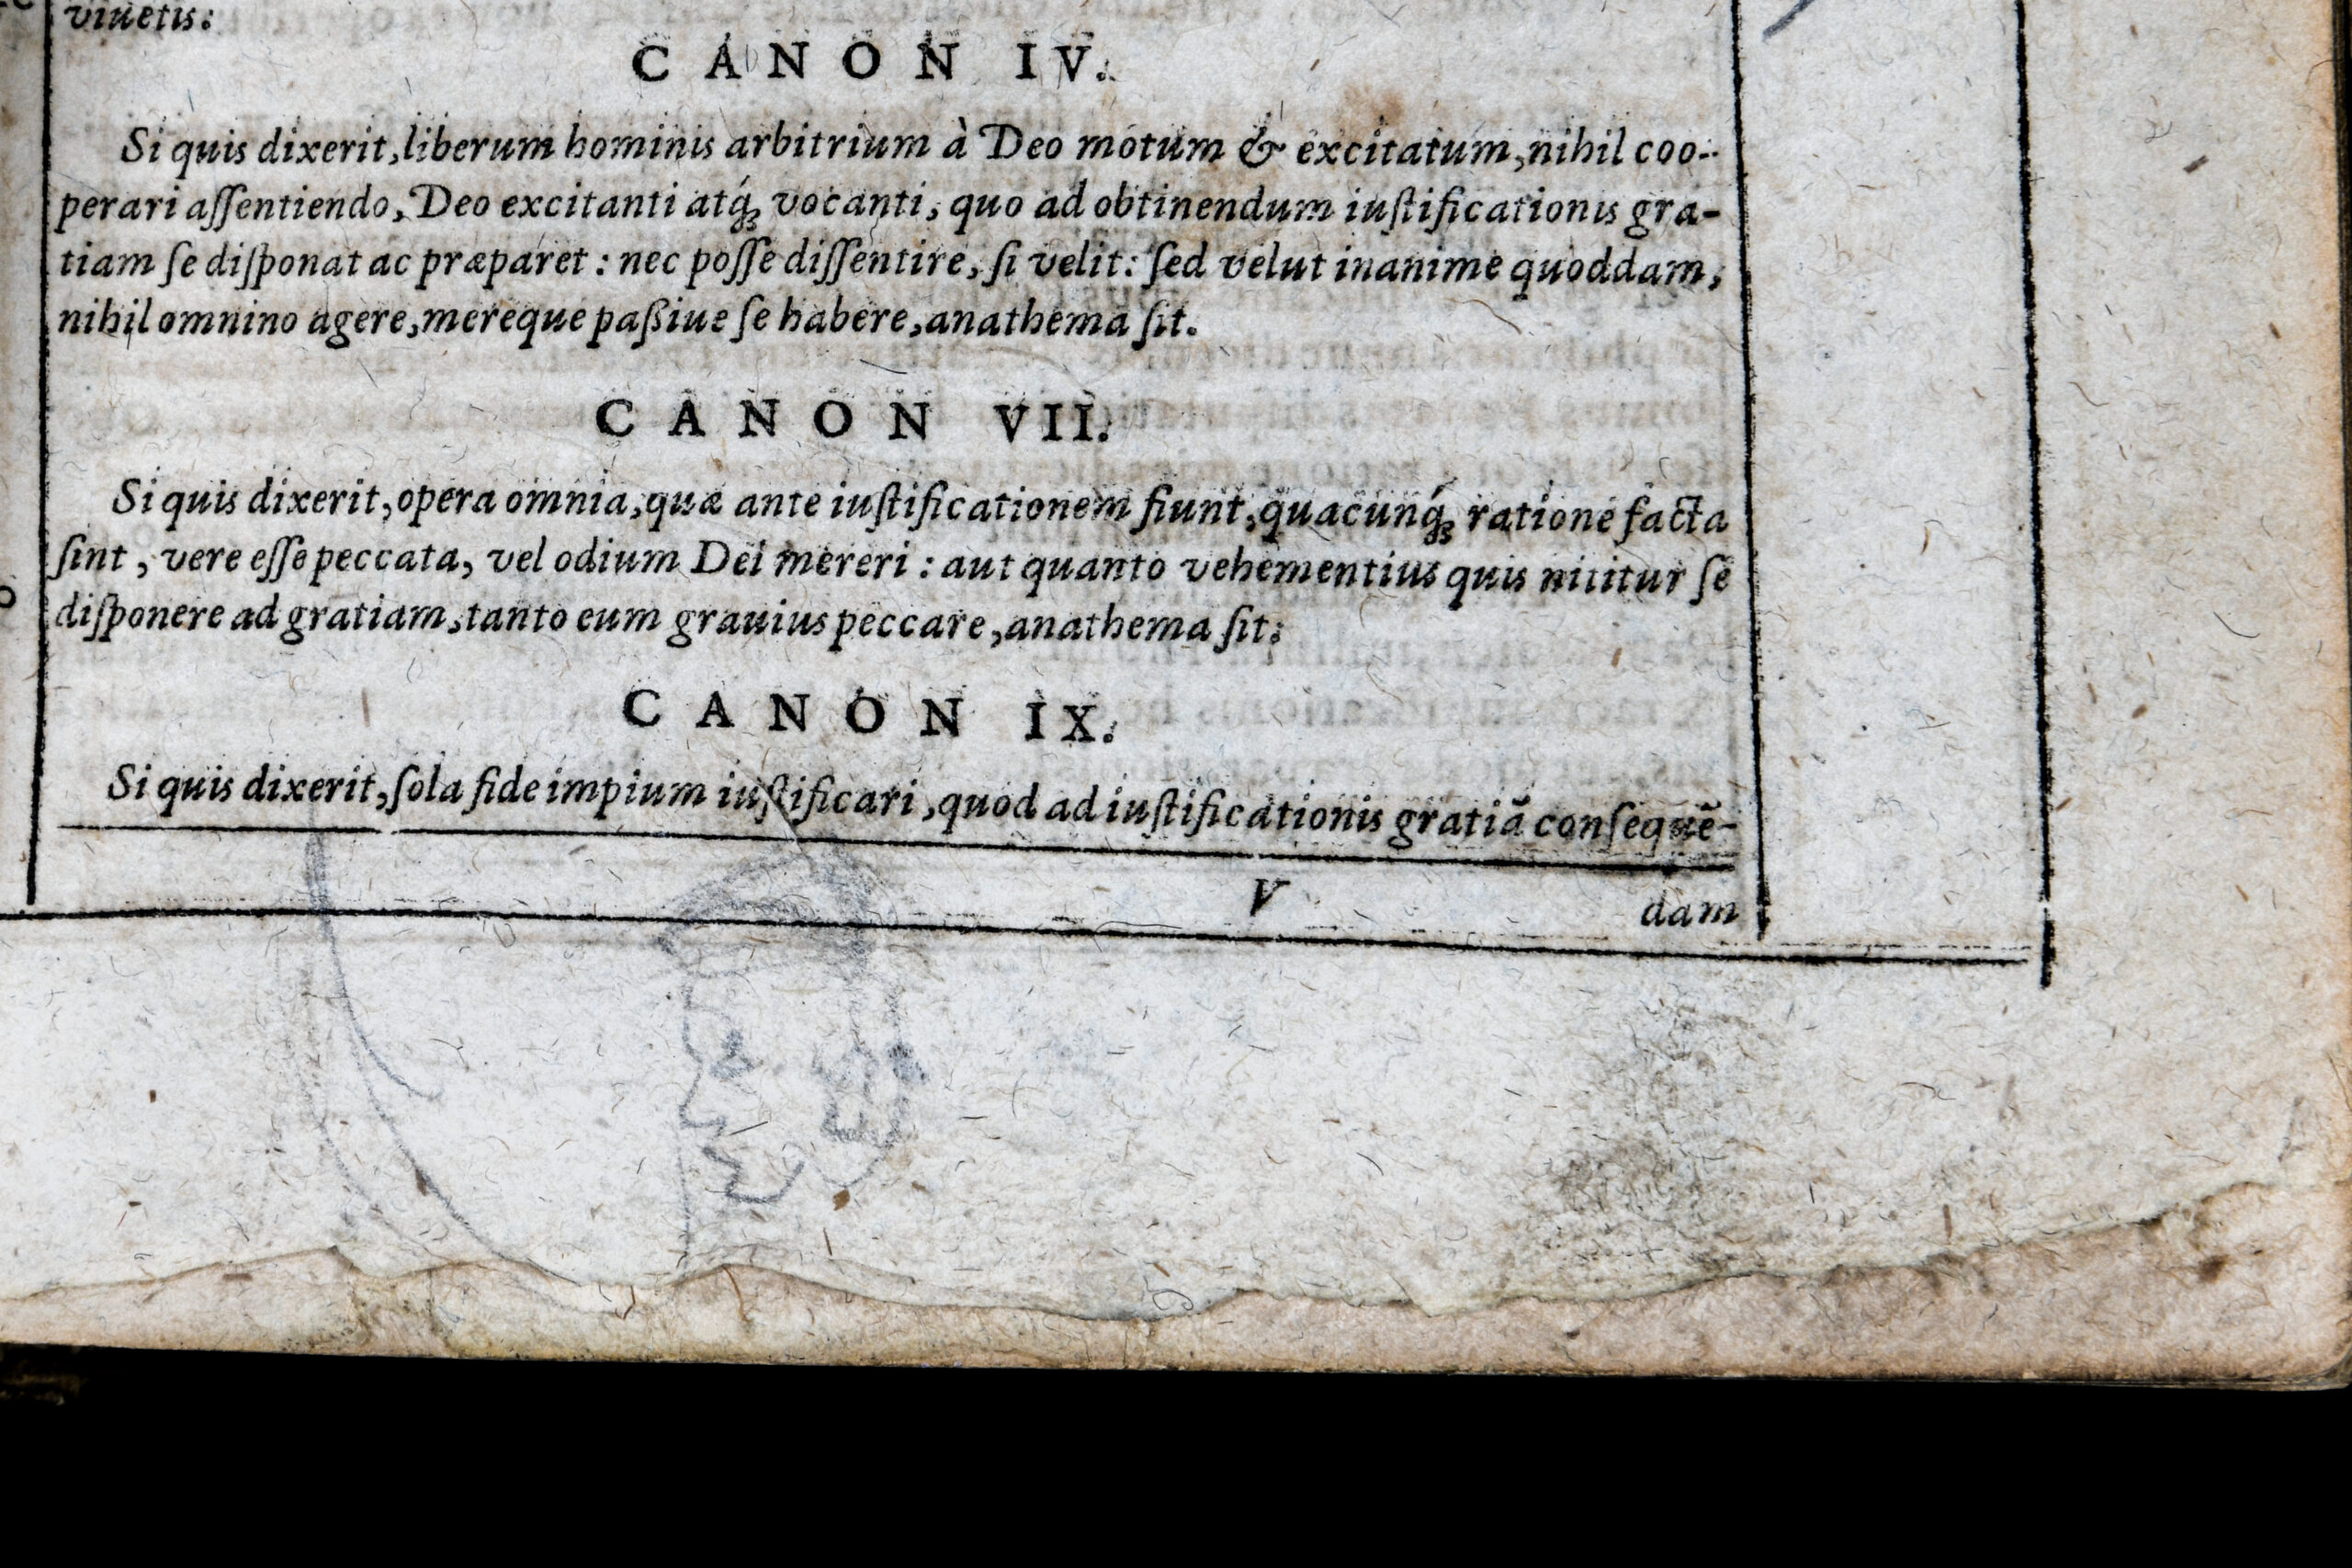 viuetis:
CANON IV.
Si quis dixerit, liberum hominis arbitrium à Deo motum & excitatum, nihil coo-
perari aſſentiendo, Deo excitanti atq́; vocanti, quo ad obtinendum iuſtificationis gra-
tiam ſe diſponat ac præparet: nec poſſe diſſentire, ſi velit: ſed velut inanime quoddam,
nihil omnino agere, mereque paßiue ſe habere, anathema ſit.
CANON VII.
Si quis dixerit, opera omnia, quæ ante iuſtificationem fiunt, quacunq́; ratione facta
ſint, vere eſſe peccata, vel odium Dei mereri: aut quanto vehementius quis nititur ſe
diſponere ad gratiam, tanto eum grauius peccare, anathema ſit.
CANON IX.
Si quis dixerit, ſola fide impium iuſtificari, quod ad iuſtificationis gratiã conſequẽ-
V
dam